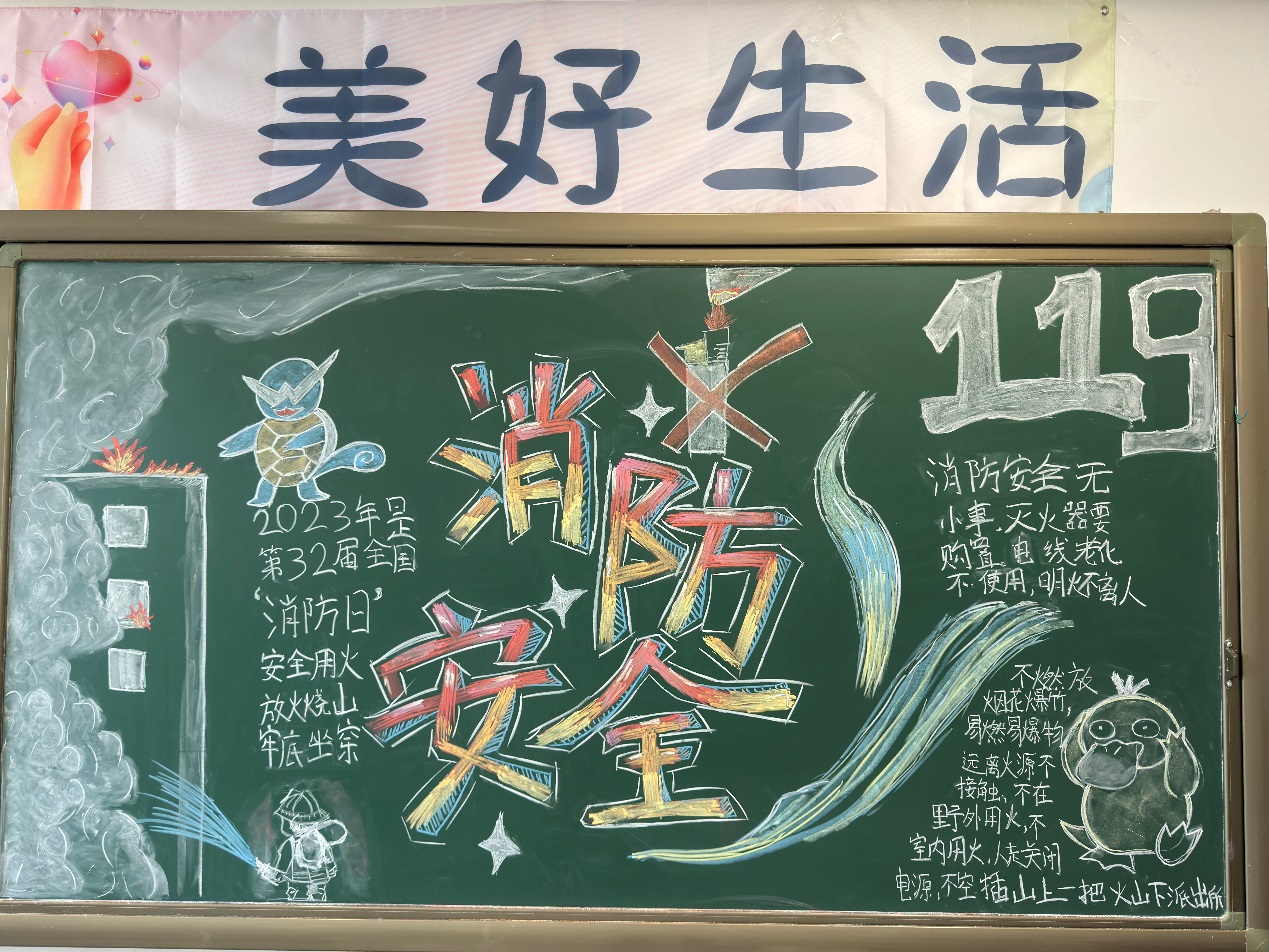 美好生活
119
消防
安全
2023年是
第32届全国
"消防日"
安全用火
放火烧山
牢底坐穿
消防安全无
小事,灭火器要
购置电线老化
不使用,明火不离人
不燃放
烟花爆竹,
易燃易爆物
远离火源不
接触、不在
野外用火,不
室内用火,人走关闭
电源,不空插山上一把火山下派出所